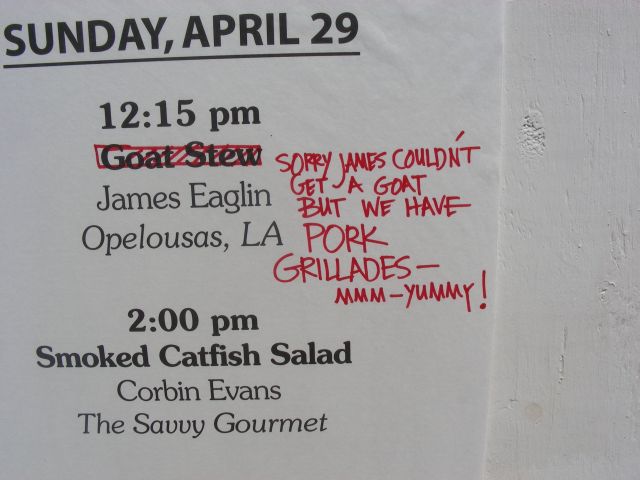 SUNDAY, APRIL 29
12:15 pm
Goat Stew
James Eaglin
Opelousas, LA
SORRY JAMES COULDN'T
GET A GOAT
BUT WE HAVE
PORK
GRILLADES—
MMM-YUMMY!
2:00 pm
Smoked Catfish Salad
Corbin Evans
The Savvy Gourmet